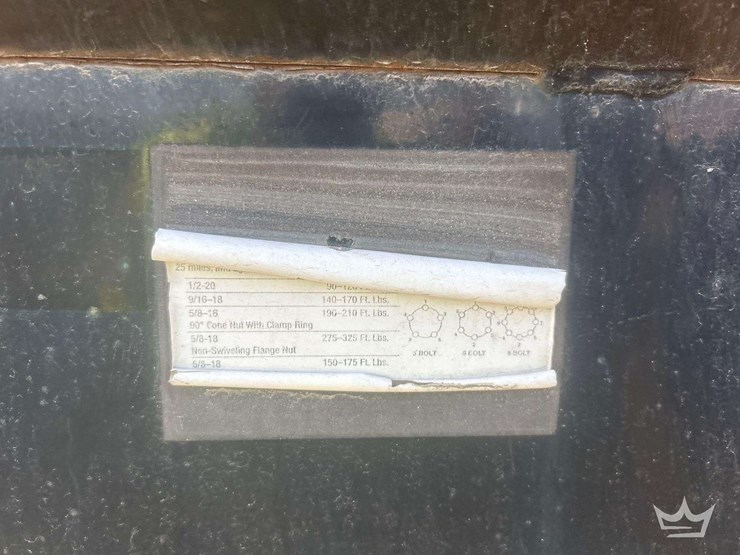 25 miles, and
1/2-20 90-120
9/16-18 140-170 Ft. Lbs.
5/8-18 190-210 Ft. Lbs.
90° Cone Nut With Clamp Ring
5/8-18 275-325 Ft. Lbs.
Non-Swiveling Flange Nut
5/8-18 150-175 Ft. Lbs.
5 BOLT 6 BOLT 8 BOLT